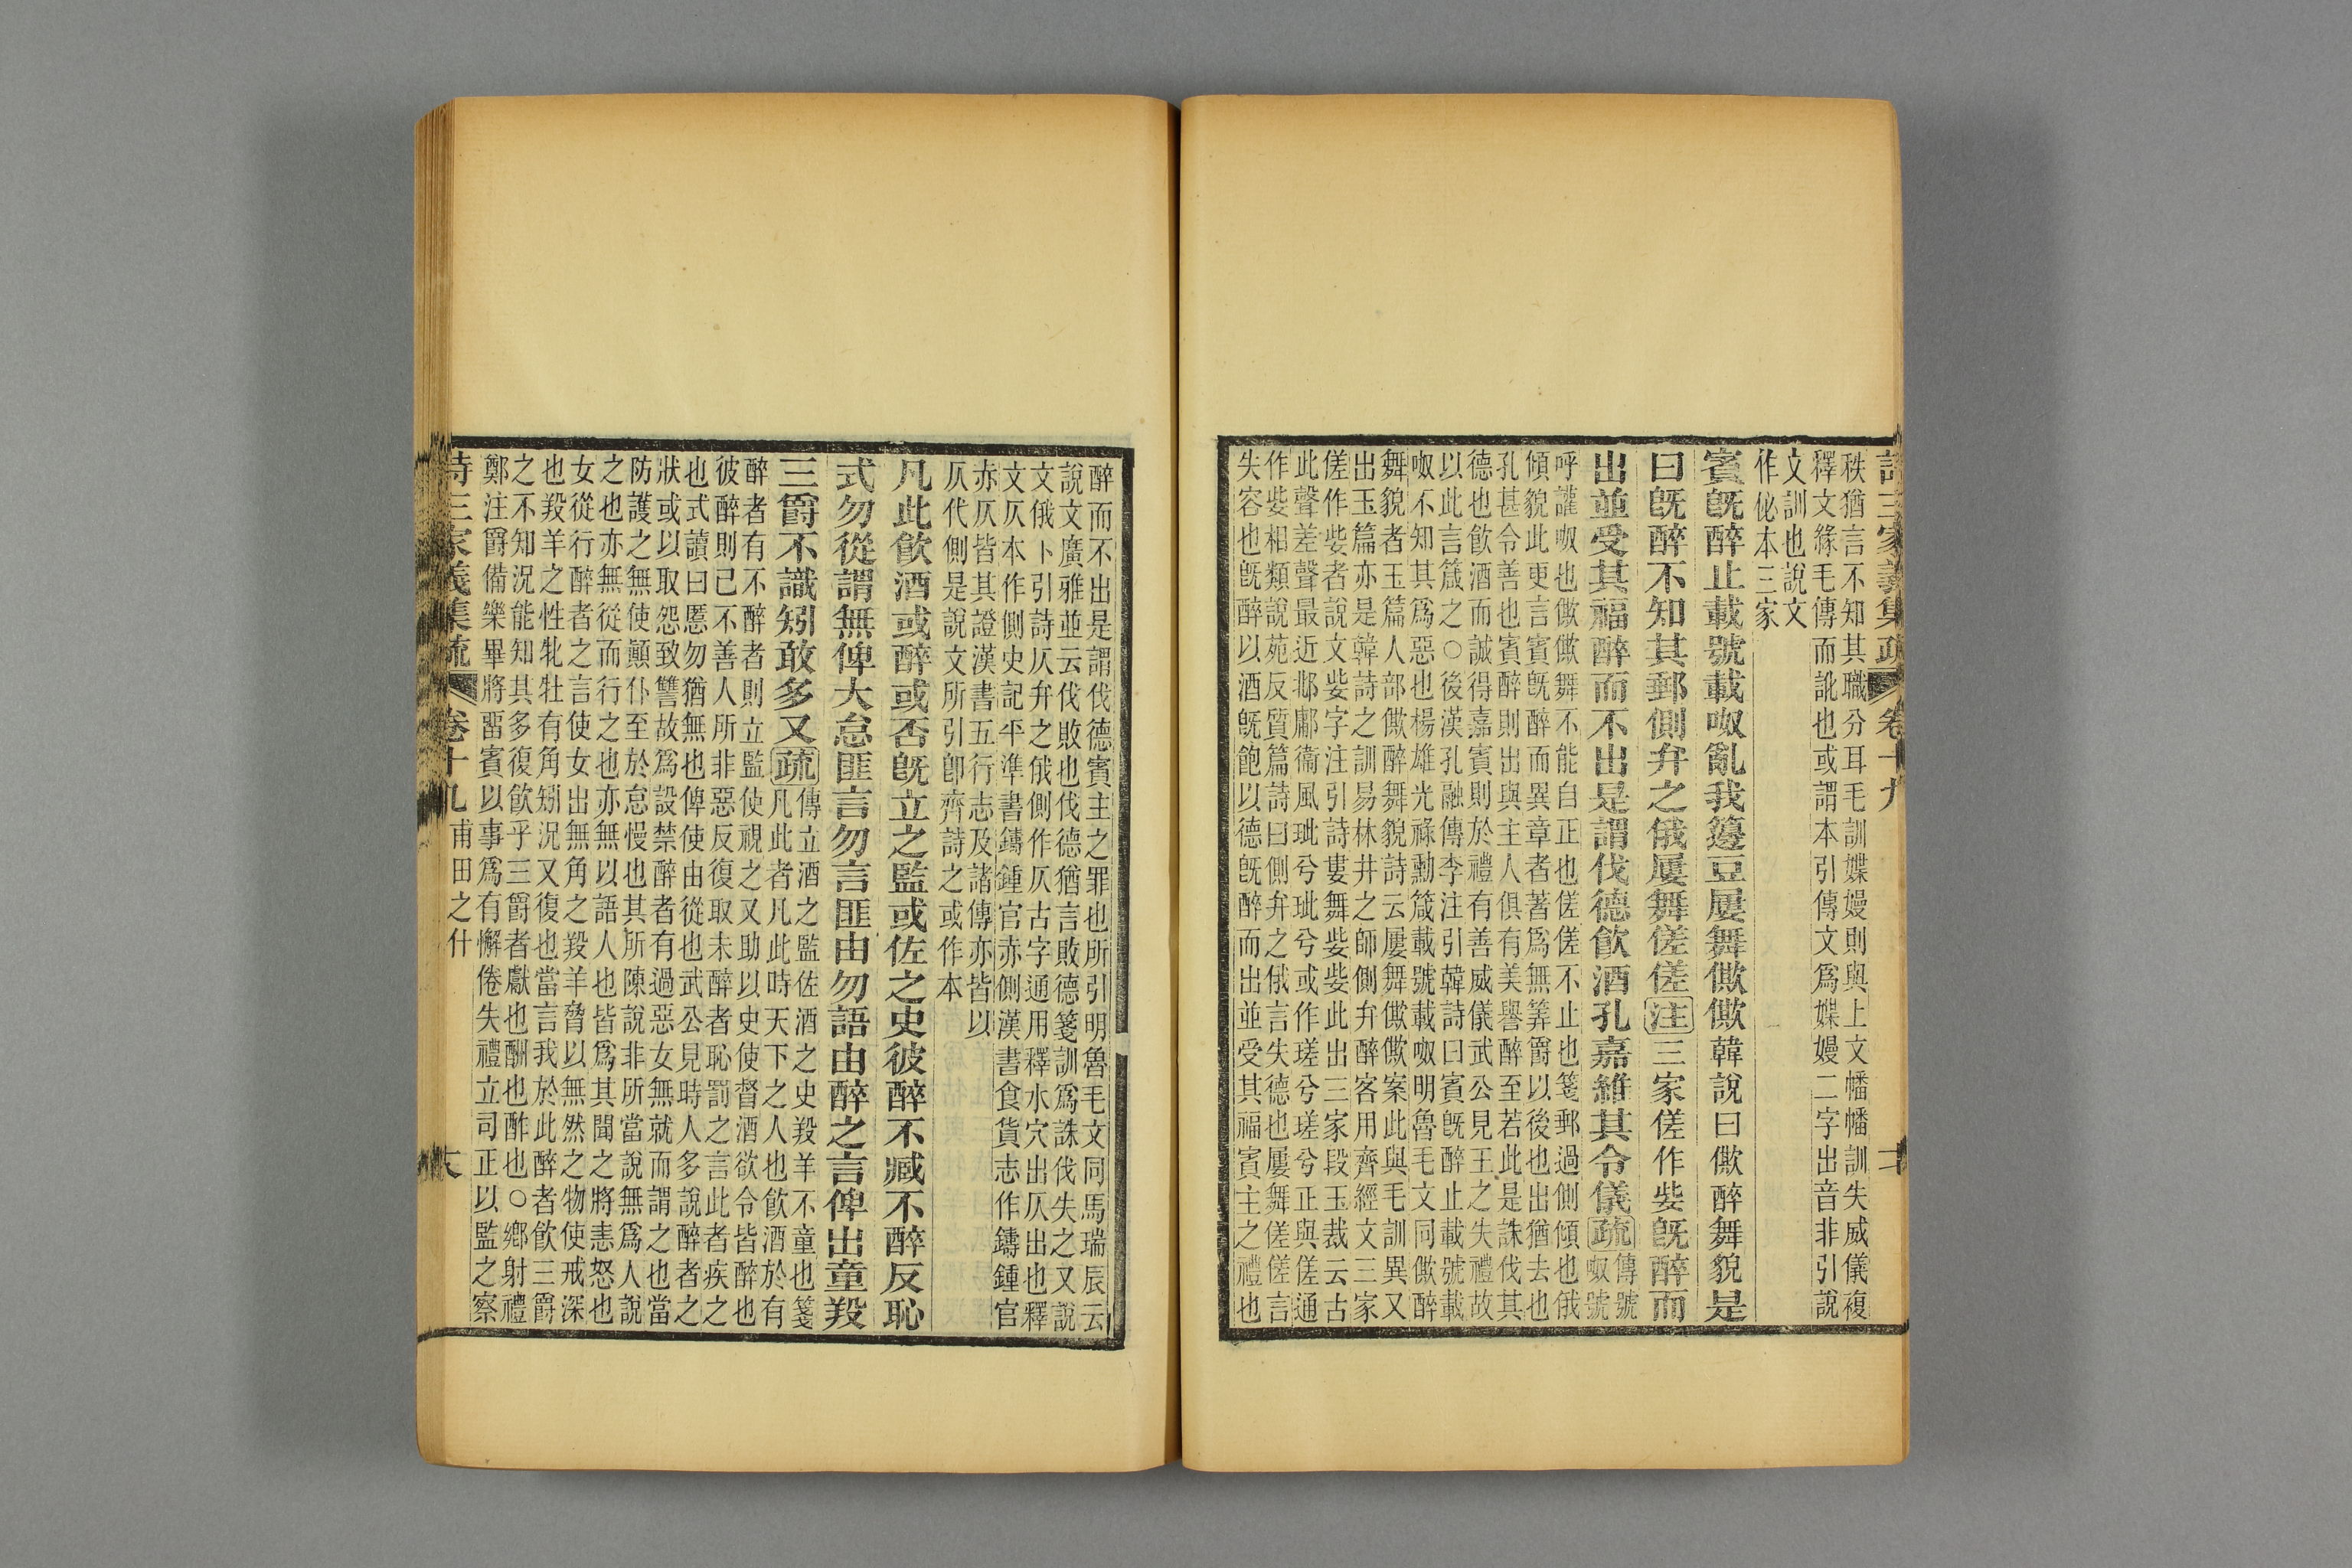 詩三家義集疏 卷十九
秩猶言不知其職分耳毛訓媟嫚則與上文幡幡訓失威儀複
釋文緣毛傳而訛也或謂本引傳文爲媟嫚二字出音非引說
文訓也說文
作佖本三家
賓旣醉止載號載呶亂我籩豆屢舞僛僛韓說曰僛醉舞貌是
曰旣醉不知其郵側弁之俄屢舞傞傞注三家傞作姕旣醉而
出並受其福醉而不出是謂伐德飮酒孔嘉維其令儀疏傳號
呶號
呼讙呶也僛僛舞不能自正也傞傞不止也箋郵過側傾也俄
傾貌此更言賓旣醉而異章者著爲無筭爵以後也出猶去也
孔甚令善也賓醉則出與主人俱有美譽醉至若此是誅伐其
德也飮酒而誠得嘉賓則於禮有善威儀武公見王之失禮故
以此言箴之○後漢孔融傳李注引韓詩曰賓旣醉止載號載
呶不知其爲惡也楊雄光祿勳箴載號載呶明魯毛文同僛醉
舞貌者玉篇人部僛醉舞貌詩云屢舞僛僛案此與毛訓異又
出玉篇亦是韓詩之訓易林井之師側弁醉客用齊經文三家
傞作姕者說文姕字注引詩婁舞姕姕此出三家段玉裁云古
此聲差聲最近邶鄘衞風玼兮玼兮或作瑳兮瑳兮正與傞通
作姕相類說苑反質篇詩曰側弁之俄言失德也屢舞傞傞言
失容也旣醉以酒旣飽以德旣醉而出並受其福賓主之禮也
醉而不出是謂伐德賓主之罪也所引明魯毛文同馬瑞辰云
說文廣雅並云伐敗也伐德猶言敗德箋訓爲誅伐失之又說
文俄卜引詩仄弁之俄側作仄古字通用釋水穴出仄出也釋
文仄本作側史記平準書鑄鍾官赤側漢書食貨志作鑄鍾官
亦仄皆其證漢書五行志及諸傳亦皆以
仄代側是說文所引卽齊詩之或作本
凡此飮酒或醉或否旣立之監或佐之史彼醉不臧不醉反恥
式勿從謂無俾大怠匪言勿言匪由勿語由醉之言俾出童羖
三爵不識矧敢多又疏傳立酒之監佐酒之史羖羊不童也箋
凡此者凡此時天下之人也飮酒於有
醉者有不醉者則立監使視之又助以史使督酒欲令皆醉也
彼醉則已不善人所非惡反復取未醉者恥罰之言此者疾之
也式讀曰慝勿猶無也俾使由從也武公見時人多說醉者之
狀或以取怨致讐故爲設禁醉者有過惡女無就而謂之也當
防護之無使顚仆至於怠慢也其所陳說非所當說無爲人說
之也亦無從而行之也亦無以語人也皆爲其聞之將恚怒也
女從行醉者之言使女出無角之羖羊脅以無然之物使戒深
也羖羊之性牝牡有角矧況又復也當言我於此醉者飮三爵
之不知況能知其多復飮乎三爵者獻也酬也酢也○鄉射禮
鄭注爵備樂畢將畱賓以事爲有懈倦失禮立司正以監之察
詩三家義集疏 卷十九 甫田之什